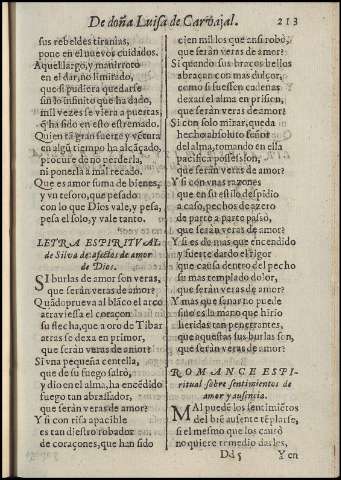 De doña Luisa de Carbajal. 213
sus rebeldes tiranias,
pone en el nueuos cuidados.
Aquel largo, y manirroto
en el dar, no limitado,
que si pudiera quedarse
sin lo infinito que ha dado,
mil vezes se viera a puertas,
q̃ ha sido en esso estremado.
Quien tã gran suerte y vẽtura
en algũ tiempo ha alcãçado,
procure no perderla,
ni ponerla a mal recado.
Que es amor suma de bienes,
y vn tesoro, que pesado
con lo que Dios vale, y pesa,
pesa el solo, y vale tanto.
LETRA ESPIRITVAL
de Silva de afectos de amor
de Dios.
SI burlas de amor son veras,
que serán veras de amor?
Quãdo prueua al blãco el arco
atrauiessa el coraçon
su flecha, que a oro de Tibar
atras se dexa en primor,
que serán veras de amor?
Si vna pequeña centella,
que de su fuego saltò,
y dio en el alma, ha encẽdido
fuego tan abrassador,
que serán veras de amor?
Y si con risa apacible
es tan diestro robador
de coraçones, que han sido
cien mil los que ansi robò,
que serán veras de amor?
Si quando sus braços bellos
abraçan con mas dulçor,
como si fuessen cadenas
dexan el alma en prision,
que serán veras de amor?
Si con solo mirar, queda
hecho absoluto señor
del alma, tomando en ella
pacifica possession,
que serán veras de amor?
Y si con vnas razones
que en su estilo despidio
a caso, pechos de azero
de parte a parte passò,
que serán veras de amor?
Y si es de mas que encendido
y fuerte dardo el rigor
que causa dentro del pecho
su mas templado dolor,
que serán veras de amor?
Y mas que sanar no puede
sino es la mano que hirio
heridas tan penetrantes,
que aquestas sus burlas son,
que serán veras de amor?
ROMANCE ESPI-
ritual sobre sentimientos de
amor y ausencia.
MAl puedẽ los sentimiẽtos
del biẽ ausente tẽplarse,
si el mesmo que los causò
no quiere remedio darles,
Dd 5 Y en